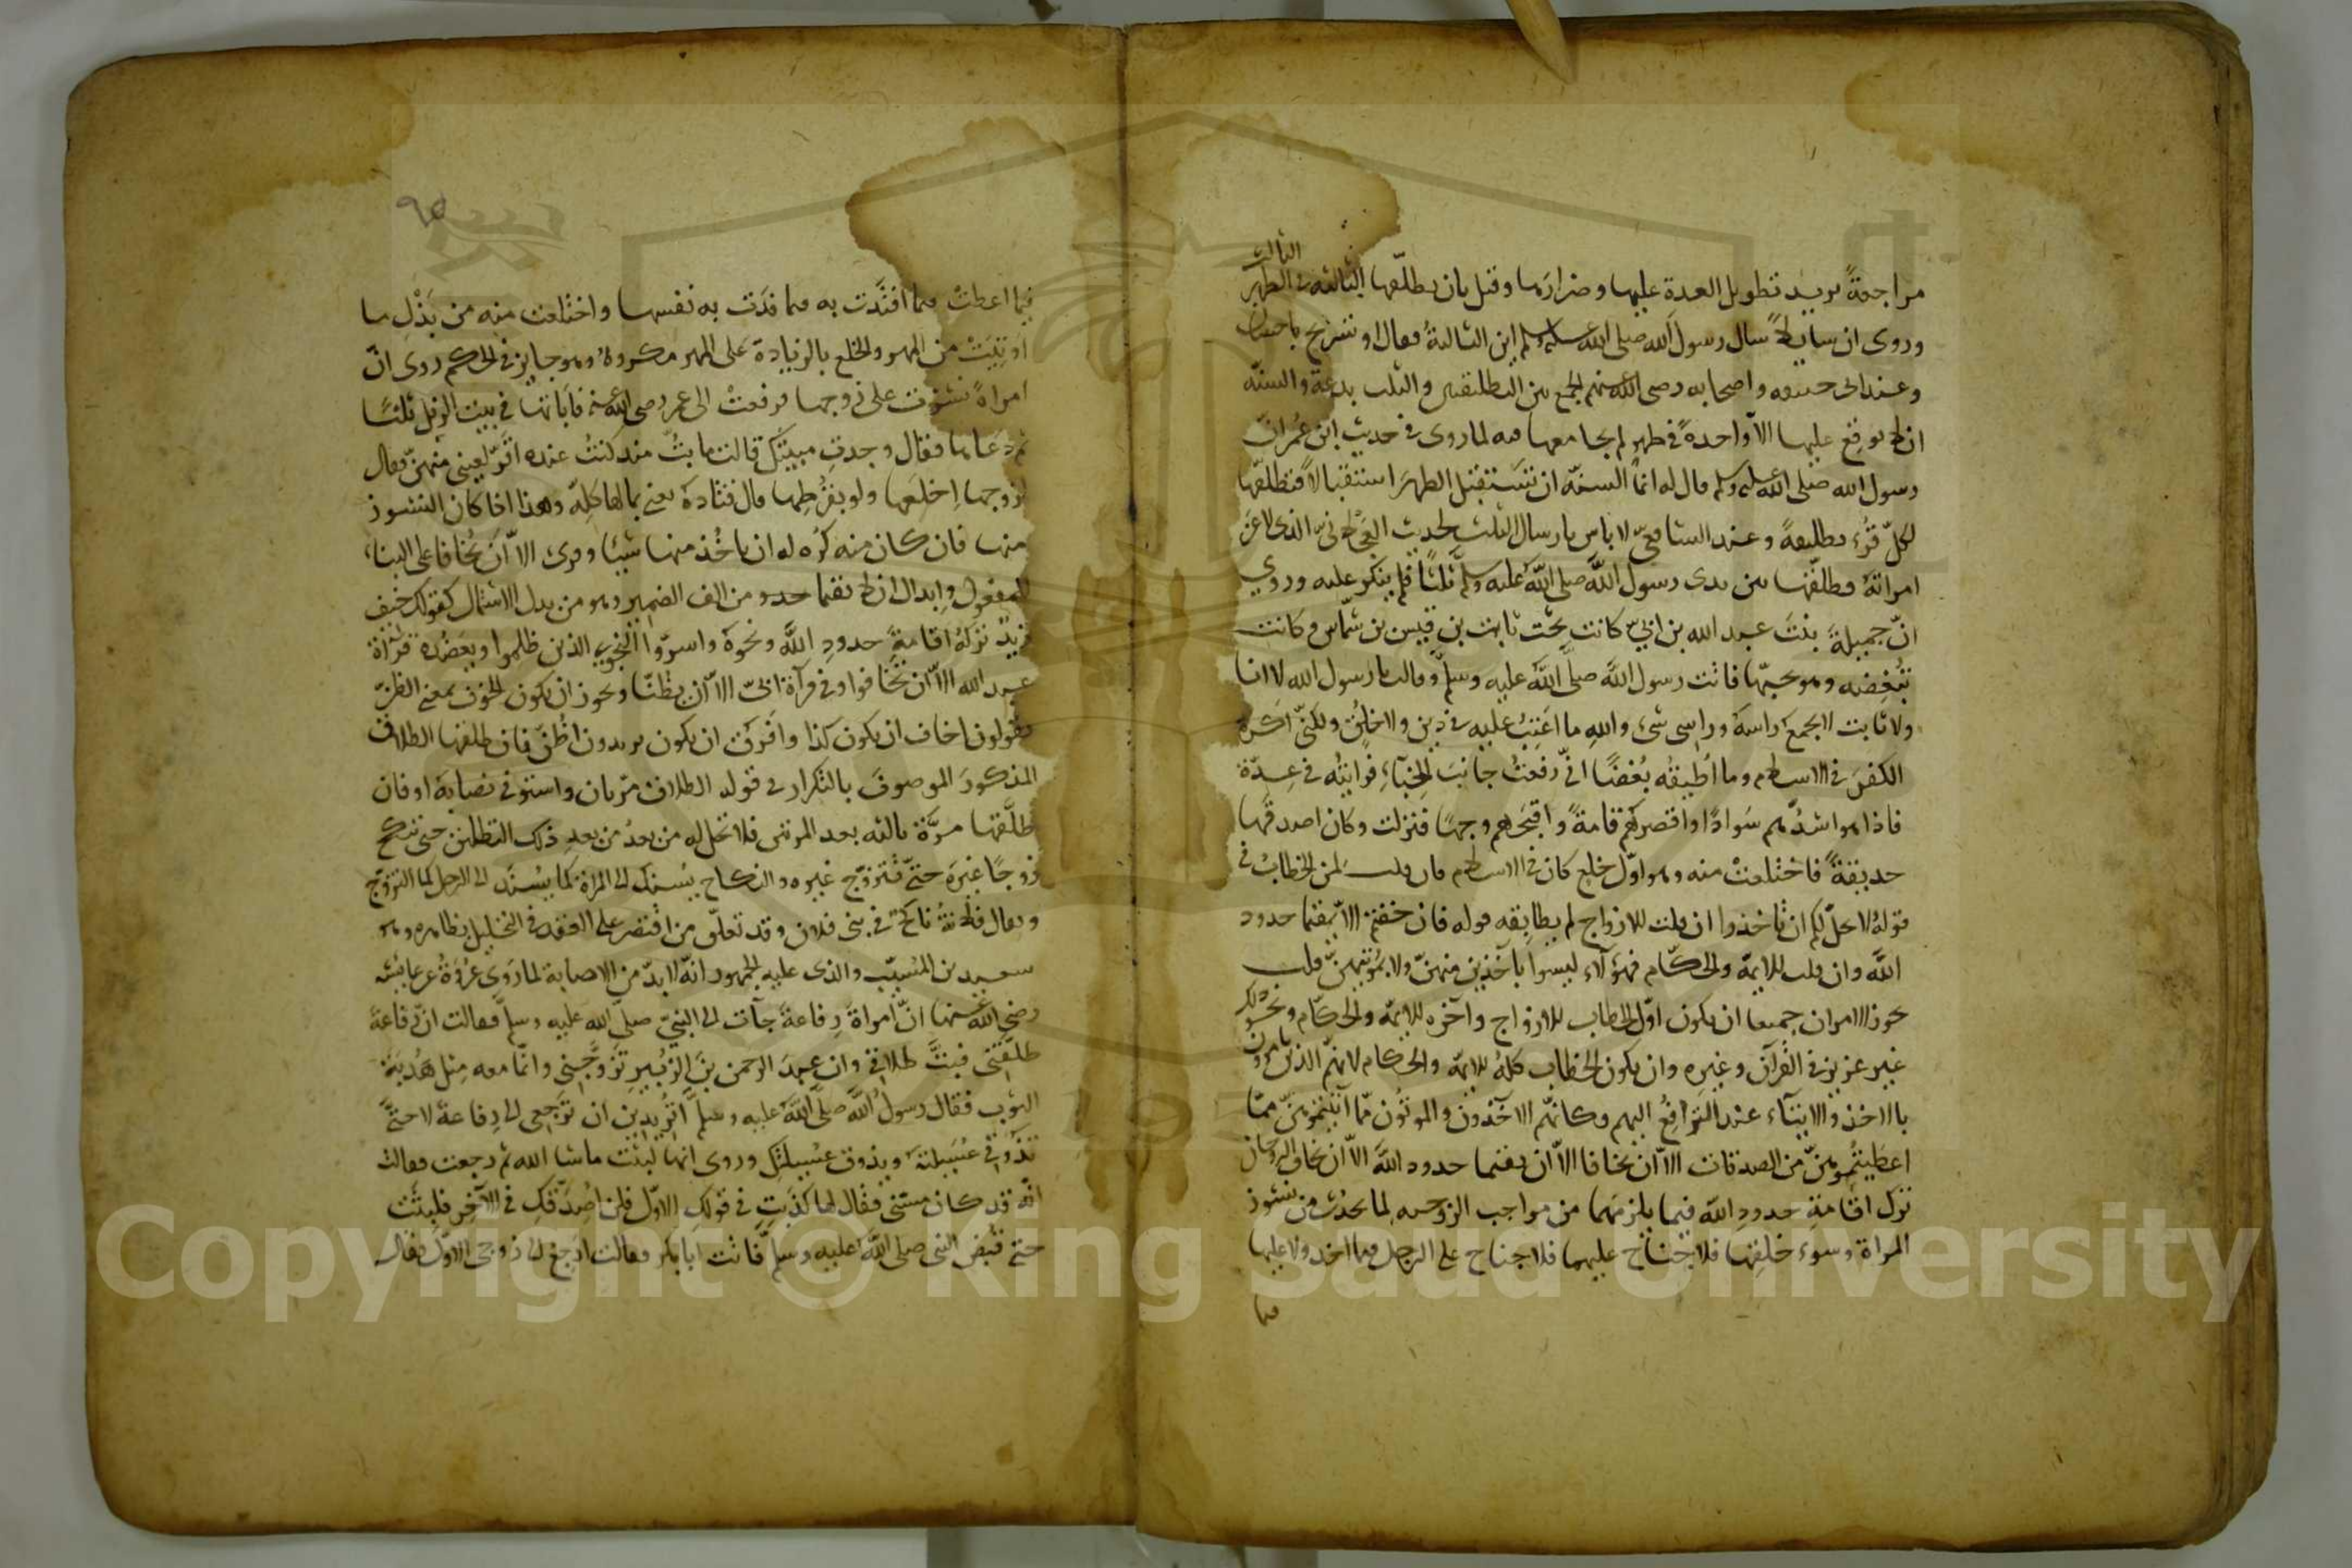 الثالث
مراجعةً يريد تطويل العدة عليها وضرارها وقيل بان يطلّقها الثالثة فى الطهر
وروى ان سايلاً سال رسول الله صلى الله عليه وسلم اين الثالثة فقال او تسريح باحسان
وعند ابى حنيفه واصحابه رضى الله عنهم الجمع بين التطليقتين والثلث بدعة والسنّة
ان لا يوقع عليها الا واحدة فى طهر لم يجامعها فيه لما روى فى حديث ابن عُمر ان
رسول الله صلى الله عليه وسلم قال له انما السنّة ان تستقبل الطهرَ استقبالاً فتطلّقها
لكلّ قُرء تطليقةً وعند الشافعىّ لا باس بارسال الثلث لحديث العجلانىّ الذى لاعن
امراتهُ فطلّقها بين يدى رسول اللّه صلى اللّه عليه وسلم ثلثاً فلم ينكر عليه وروي
انّ جميلةَ بنتَ عبد الله بن ابىّ كانت تحت ثابت بن قيس بن شمّاس وكانت
تُبغِضه وهو يحبّها فاتت رسول اللّه صلّى اللّه عليه وسلّم وقالت يا رسول الله لا انا
ولا ثابت لا يجمع راسهُ وراسى شىء واللهِ ما اَعتِبُ عليه فى دين ولا خلُق ولكنّى اكره
الكفرَ فى الاسلام وما اُطيقُه بُغضًا انّى رفعتُ جانبَ الخباءِ فرايتُه فى عِدّة
فاذا هو اشدّهم سَوادًا واقصرهُم قامةً واقبحَهم وجهًا فنزلت وكان اصدقها
حديقةً فاختلعتْ منه وهو اوّل خلع كان فى الاسلام فان قلت لمن الخطابُ فى
قوله لا يحلّ لكم ان تاخذوا ان قلت للازواج لم يطابقه قوله فان خفتم الاّ يقيما حدود
اللّه وان قلت للايمّة والحكّام فهؤلآءِ ليسوا بآخذين منهنّ ولا بمؤتيهنّ قلت
يجوز الامران جميعا ان يكون اوّل الخطاب للازواج وآخره للايمّة والحكّام ونحو ذلك
غير عزيز فى القرآن وغيره وان يكون الخطاب كلهُ للايمّة والحكام لانهمُ الذين يامرون
بالاخذ والايتآء عند الترافُع اليهم وكانهّم الاخذون والموتُون ممّا آتيتموهنّ ممّا
اعطيتُموهنّ من الصدقات الاّ ان يخافا الاّ ان يقيما حدود اللّه الاّ ان يخاف الزوجان
ترك اقامةِ حدودِ اللّه فيما يلزمهُما من مواجب الزوجيه لما يحدُث من نشوز
المراة وسوء خلقِها فلا جناحَ عليهما فلا جناح على الرجل فيما اخذ ولا عليها
فيما
٩٥
فيما اعطتْ فيما افتدَت به فيما فدَت به نفسها واختلعت منه من بَذْلِ ما
اوتِيَتْ من المهر والخلع بالزيادة على المهر مكروهُ وهو جايز فى الحكم روى انّ
امراةً نشزت على زوجها فرفعتْ الى عمر رضى الله عنه فاَباتها فى بيت الزبل ثلثًا
ثم دعاها فقال كيف وجدتِ مبيتكِ قالت ما بتُّ منذ كنتُ عنده اقَرّ لعينى منهنّ فقال
لزوجها اِخلعها ولو بقُرْطِها قال قتادةُ يعنى بمالها كلِه وهذا اذا كان النشوز
منها فان كان منه كُره له ان ياخُذ منها شيئا وقرئ الاّ اَن يُخافا على البناء
للمفعول وابدال ان لا يقيما حدود من الف الضمير وهو من بدل الاشتمال كقولك خيف
زيدٌ تركُهُ اقامةَ حدودِ اللّه ونحوهُ واسرّوا النجوى الذين ظلموا ويعضُده قراءة
عبد الله الاّ ان تخافوا وفى قرآءة اُبىّ الاّ ان يظُنّا ويجوز ان يكون الخوف بمعنى الظنّ
يقولون اخاف ان يكون كذا وافرَق ان يكون يريدون اظُنّ فان طلقها الطلاق
المذكورَ الموصوفَ بالتكرار فى قوله الطلاق مرّتان واستوفى نصابَهُ او فان
طلَّقها مرَّة ثالثه بعد المرتين فلا تحل له من بعدُ من بعدِ ذلك التطليق حتى تنكح
زوجًا غيرَه حتىّ تتزوّج غيره والنكاح يُسنَد الى المراة كما يُسنَد الى الرجل كما التزوّج
ويقال فلانةُ ناكح فى بنى فلان وقد تعلّق من اقتصر على العقد فى التحليل بظاهره وهو
سعيد بن المسيّب والذى عليه الجمهور انهّ لا بدّ من الاصابة لما رَوى عُروةُ عن عايشه
رضى اللّه عنها انّ امراةَ رِفاعةَ جآت الى النبىّ صلىّ الله عليه وسلم فقالت انّ رفاعةَ
طلّقنى فبتَّ طلاقى وان عبدَ الرحمن بنَ الزَبير تزوَّجنى وانّما معه مِثل هُدْبَةِ
الثوب فقال رسولُ اللّه صلىّ اللّه عليه وسلم اَتُريدين ان ترجعى الى رِفاعةَ لا حتىَّ
تذُوقى عُسَيلتهُ ويذوق عُسَيلتَكِ وروى انها لبثت ماشا الله ثم رجعت فقالت
انّه قد كان مسّنى فقال لها كذَبتِ فى قولكِ الاوّل فلن اُصدّقكِ فى الآخِر فلبثت
حتى قُبض النبى صلى اللّه عليه وسلّم فاتت ابا بكر فقالت اارجع الى زوجى الاوّل فقال
Copyright © King Saud University